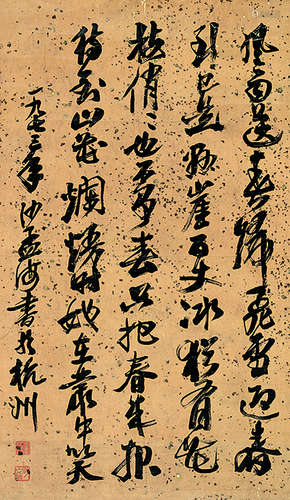 風雨送春歸飛雪迎春
到已是懸崖百丈冰猶有花
枝俏〻也不爭春只把春來報
待到山花爛熳時她在叢中笑
一九七三年沙孟海書於杭州